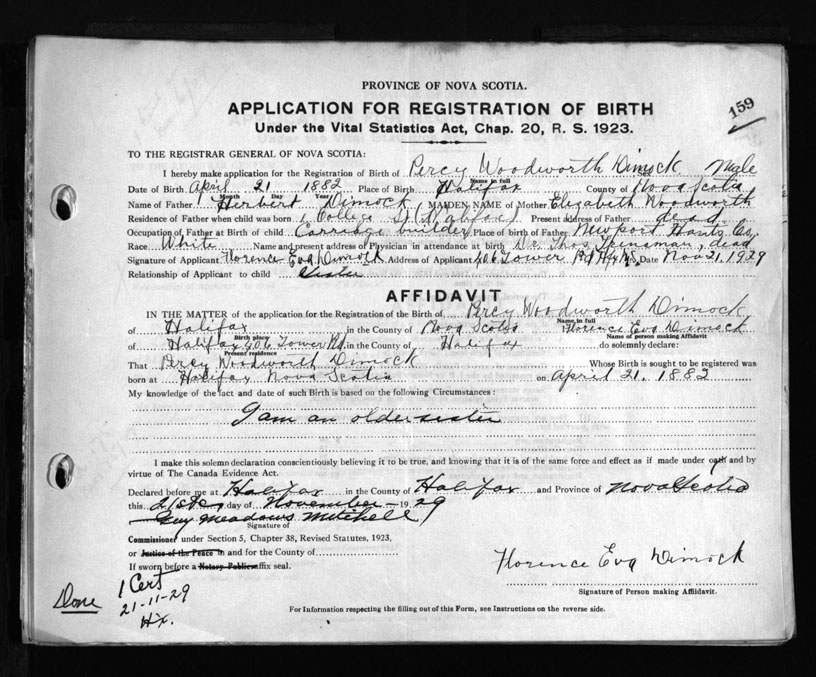 159
PROVINCE OF NOVA SCOTIA.
APPLICATION FOR REGISTRATION OF BIRTH
Under the Vital Statistics Act, Chap. 20, R. S. 1923.
TO THE REGISTRAR GENERAL OF NOVA SCOTIA:
I hereby make application for the Registration of Birth of Percy Woodworth Dimock Male
Name in full
Date of Birth April 21 1882 Place of Birth Halifax County of Nova Scotia
Month Day Year
Name of Father Herbert Dimock MAIDEN NAME of Mother Elizabeth Woodworth
Residence of Father when child was born College St (Halifax) Present address of Father dead
Occupation of Father at Birth of child Carriage builder Place of birth of Father Newport Hants Co.
Race White Name and present address of Physician in attendance at birth Dr. Thos Trenaman, dead
Signature of Applicant Florence Eva Dimock Address of Applicant 406 Tower Rd Hx N.S. Date Nov 21, 1929
Relationship of Applicant to child Sister
AFFIDAVIT
IN THE MATTER of the application for the Registration of the Birth of Percy Woodworth Dimock
Name in full
of Halifax in the County of Nova Scotia I Florence Eva Dimock
Birth place Name of person making Affidavit
of Halifax 406 Tower Rd. in the County of Halifax do solemnly declare:
Present residence
That Percy Woodworth Dimock Whose Birth is sought to be registered was
born at Halifax Nova Scotia on April 21. 1882
My knowledge of the fact and date of such Birth is based on the following Circumstances:
I am an older sister
I make this solemn declaration conscientiously believing it to be true, and knowing that it is of the same force and effect as if made under oath and by
virtue of The Canada Evidence Act.
Declared before me at Halifax in the County of Halifax and Province of Nova Scotia
this 21st day of November 1929
Guy Meadows Mitchell
Signature of
Commissioner under Section 5, Chapter 38, Revised Statutes, 1923,
or Justice of the Peace in and for the County of
If sworn before a Notary Public affix seal.
Florence Eva Dimock
Signature of Person making Affidavit.
Done 1 Cert
21-11-29
Hx.
For Information respecting the filling out of this Form, see Instructions on the reverse side.